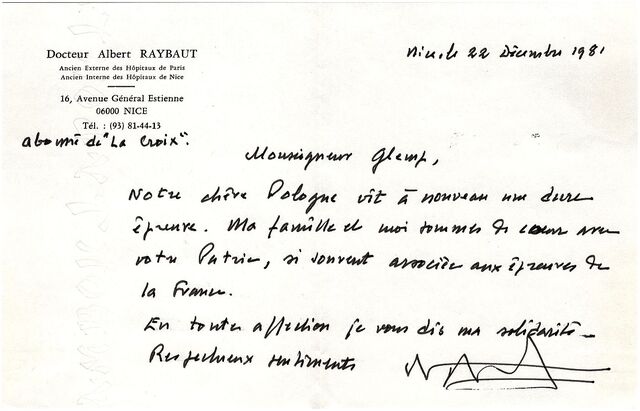 Docteur Albert RAYBAUT
Ancien Externe des Hôpitaux de Paris
Ancien Interne des Hôpitaux de Nice
16, Avenue Général Estienne
06000 NICE
Tél. : (93) 81-44-13
abonné de "La Croix".
Nice, le 22 Décembre 1981
Monseigneur Glemp,
Notre chère Pologne vit à nouveau une dure
épreuve. Ma famille et moi sommes de cœur avec
votre Patrie, si souvent associée aux épreuves de
la France.
En toute affection je vous dis ma solidarité_
Respectueux sentiments